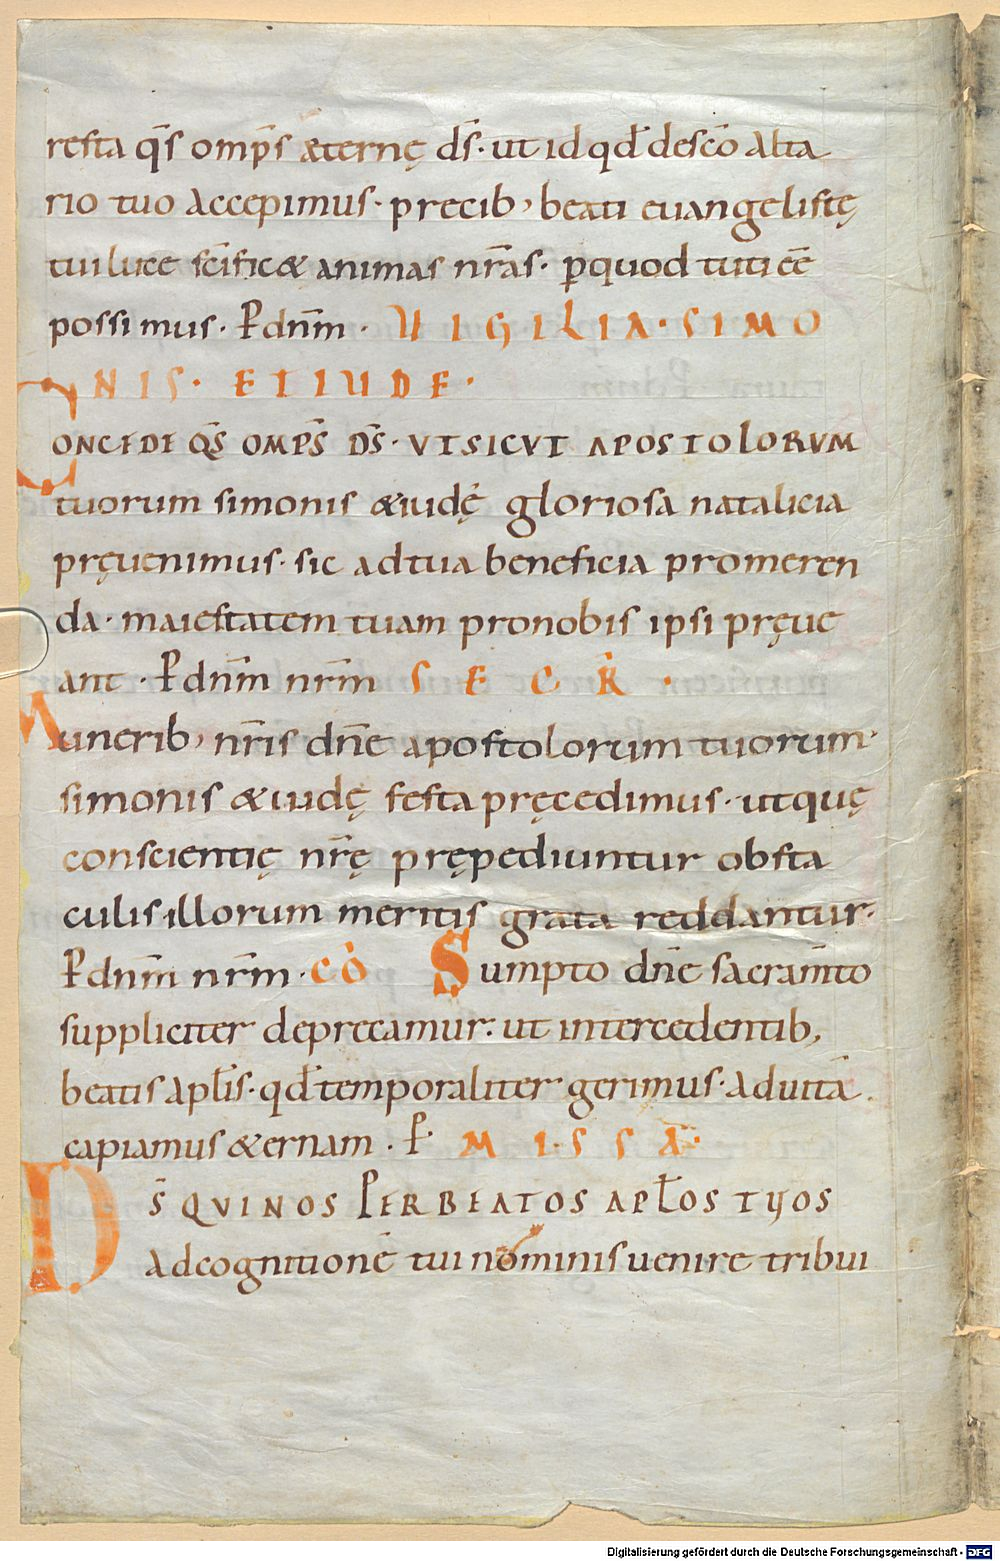 resta q̄s omp̄s æternę d̄s· ut id qđ de sc̄o alta
rio tuo accepimus· precib; beati euangelistę
tui lucę sc̄ificæ animas nr̄as· ꝑ quod tuti eē
possimus· P dnm̄· UIGILIA· SIMO
NIS· ET IUDE·
CONCEDE Q̄S OMP̄S D̄S· VT SICVT APOSTOLORVM
tuorum simonis & iudę gloriosa natalicia
pręuenimus· sic ad tua beneficia promeren
da· maiestatem tuam pro nobis ipsi pręue
ant· P dnm̄ nr̄m SECR̄·
Munerib; nr̄is dn̄e apostolorum tuorum·
simonis & iudę festa pręcedimus· ut quę
conscientię nr̄ę prępediuntur obsta
culis illorum meritis grata reddantur·
P dnm̄ nr̄m· CŌ Sumpto dn̄e sacram̄to
suppliciter deprecamur· ut intercedentib;
beatis apl̄is· qđ temporaliter gerimus· ad uitā
capiamus &ernam· P· MISSA·
D̄S QVI NOS PER BEATOS APL̄OS TUOS
ad cognitionē tui nominis uenire tribui
Digitalisierung gefördert durch die Deutsche Forschungsgemeinschaft - DFG